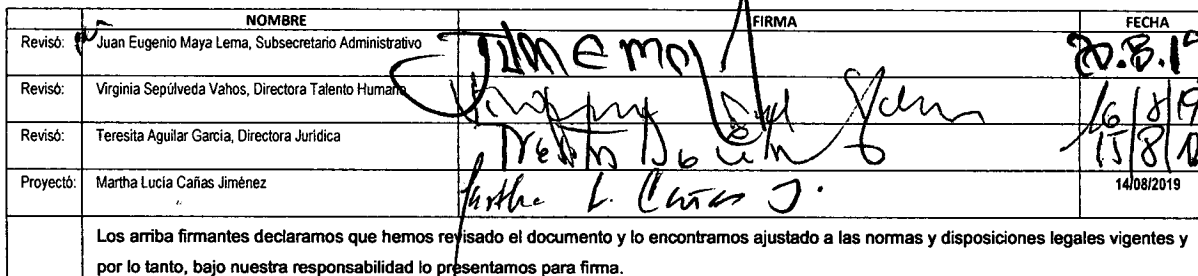 NOMBRE FIRMA FECHA
Revisó: Juan Eugenio Maya Lema, Subsecretario Administrativo
Revisó: Virginia Sepúlveda Vahos, Directora Talento Humano 16/8/19
Revisó: Teresita Aguilar García, Directora Jurídica 15/8/
Proyectó: Martha Lucía Cañas Jiménez Martha L. Cañas J. 14/08/2019
Los arriba firmantes declaramos que hemos revisado el documento y lo encontramos ajustado a las normas y disposiciones legales vigentes y
por lo tanto, bajo nuestra responsabilidad lo presentamos para firma.